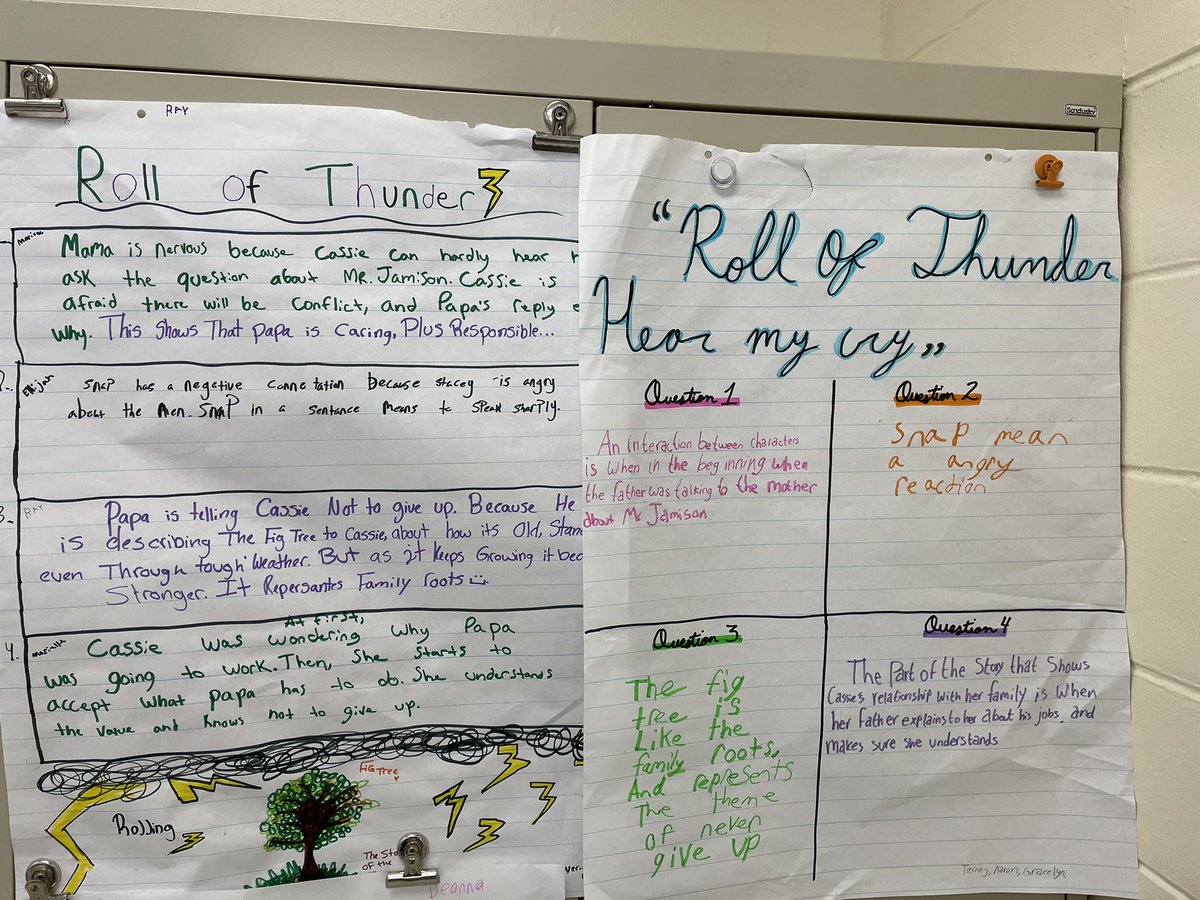 RAY
Roll of Thunder
Mama is nervous because Cassie can hardly hear
ask the question about Mr. Jamison. Cassie is
afraid there will be conflict, and Papa's reply
why. This Shows That papa is Caring, Plus Responsible...
Elijah
Snap has a negative connotation because stacey is angry
about the men. Snap in a sentence means to speak sharply.
3.
RAY
Papa is telling Cassie Not to give up. Because He
is describing The Fig Tree to Cassie, about how its Old,
even Through tough Weather. But as It Keeps Growing it
Stronger. It Repersantes Family roots
4.
At first,
Cassie was wondering why Papa
was going to work. Then, She starts to
accept what papa has to do. She understands
the value and knows not to give up.
Fig Tree
Rolling
The
of the
Deanna
Sandusky
"Roll Of Thunder
Hear my cry"
Question 1
An interaction between characters
is when in the beginning when
the father was talking to the mother
about Mr Jamison
Question 2
Snap mean
a angry
reaction
Question 3
The fig
tree is
Like the
family roots,
And represents
The theme
of never
give up
Question 4
The Part of the Story that Shows
Casse's relationship with her family is when
her Father explains to her about his jobs, and
makes sure she understands
Tierney, Aaron, Gracelyn